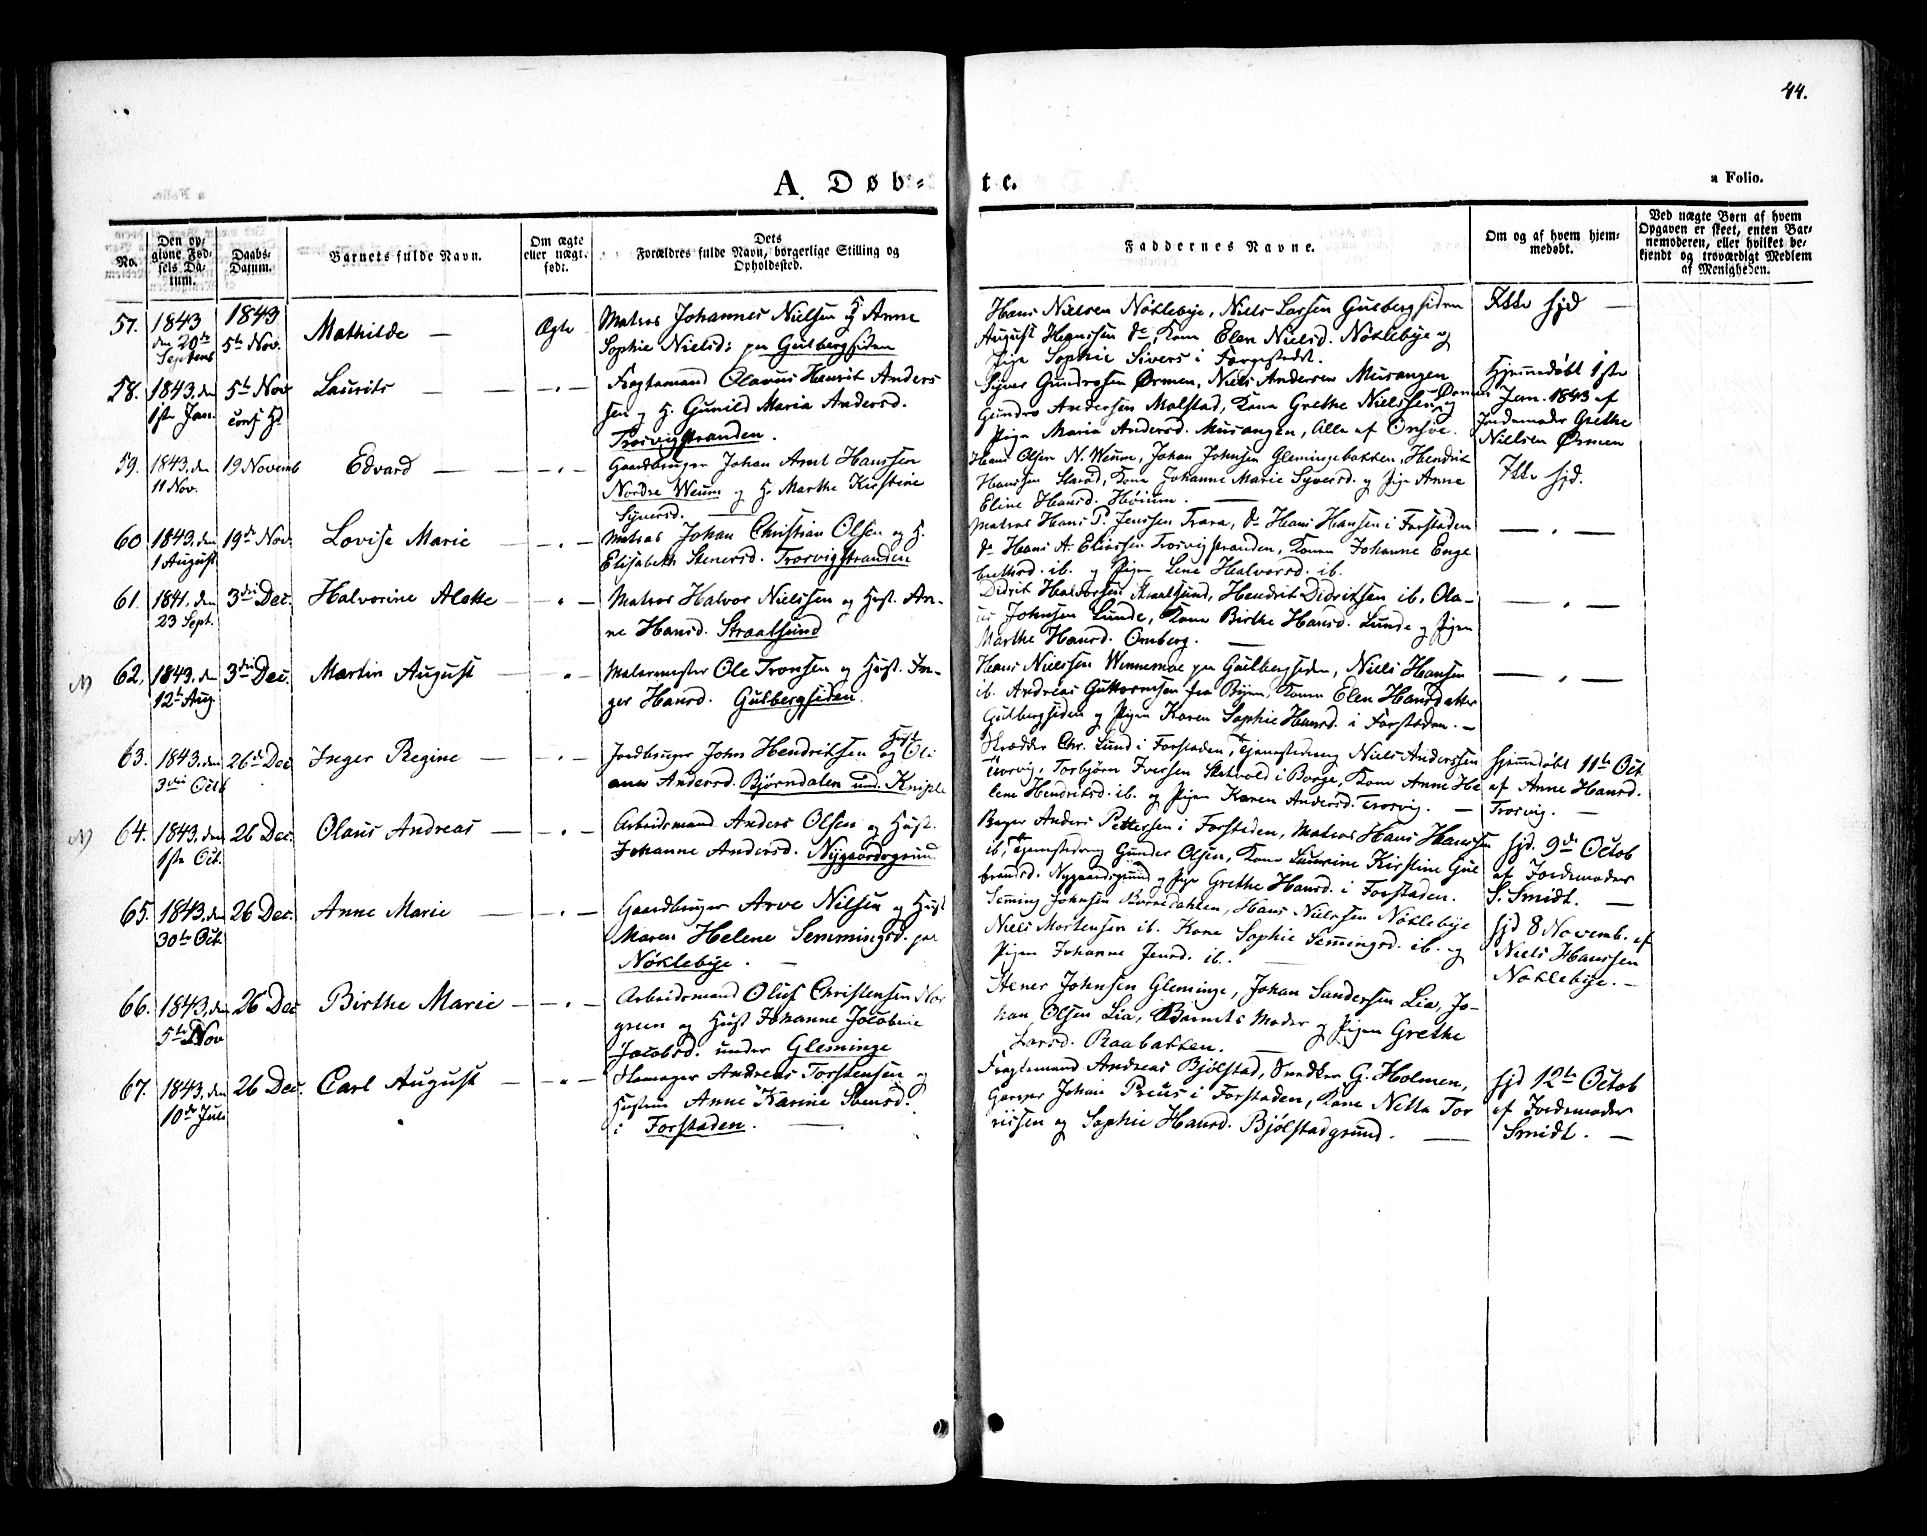 44.
A. Døb-
te.
a Folio.
No.
Den op-
givne Fød-
sels Da-
tum.
Daabs-
Datum.
Barnets fulde Navn.
Om ægte
eller uægte
født.
Dets
Forældres fulde Navn, borgerlige Stilling og
Opholdssted.
Faddernes Navne.
Om og af hvem hjem-
medøbt.
Ved uægte Børn af hvem
Opgaven er skeet, enten Bar-
nemoderen, eller hvilket be-
kjendt og troværdigt Medlem
af Menigheden.
57.
1843
den 20de
Septemb
1843
5te Nov.
Mathilde —
Ægte
Matros Johannes Nielsen H Anne
Sophie Nielsd: paa Gulbergsiden
Hans Nielsen Nøklebye, Niels Larsen Gulbergsiden
August Hanssen do, Kone Elen Nielsd. Nøklebye og
Pige Sophie Sivers i Forstadt.
Ikke hjd —
58.
1843. den
1ste Jan.
5te Nov
conf H
Laurits — —
— " —
Fragtemand Olavus Henrik Anders
sen og H. Gunild Maria Andersd.
Trosvigstranden.
Syver Gundrosen Ørmen, Niels Andersen Musangen
Gundro Andersen Molstad, Kone Grethe Nielssen Ørmen og
Pige Maria Andersd. Musangen, Alle af Onsøe.
Hjemmedøbt 1ste
Jan. 1843 af
Jordemoder Grethe
Nielsen Ørmen
59.
1843. den
11 Nov.
19 Novemb
Edvard — —
— " —
Gaardbruger Johan Arnt Hanssen
Nordre Weum og H. Marthe Kirstine
Syversd. —
Hans Olsen N. Weum, Johan Johnsen Glemingebakken, Hendrik
Hanssen Slarød, Kone Johanne Marie Syversd. og Pige Anne
Eline Hansd. Høium. —
Ikke hjd.
60
1843. den
1 August
19de Nov.
Lovise Marie —
— " —
Matros Johan Christian Olsen og H.
Elisabeth Stenersd. Trosvigstranden
Matros Hans P. Jenssen Trara, do Hans Hansen i Forstaden
do Hans A. Eliassen Trosvigstranden, Konen Johanne Enge
brettsd. ib. og Pigen Lene Halvorsd. ib.
— " —
61.
1841. den
23 Sept.
3die Dec.
Halvorine Alette —
— " —
Matros Halvor Nielssen og Hust. An-
ne Hansd. Straalsund
Didrik Halvorsen Kraalsund, Hendrik Didriksen ib, Ola-
us Johnsen Lunde, Kone Birthe Hansd. Lunde og Pigen
Marthe Hansd. Omberg. —
— " —
62.
1843. den
12te Aug
3die Dec.
Martin August —
— " —
Malermester Ole Tronsen og Hust. In-
ger Hansd. Gulbergsiden.
Hans Nielssen Winnemoe paa Gulbergsiden, Niels Hansen
ib. Andreas Guttormsen fra Byen, Konen Elen Hansdatter
Gulbergsiden og Pigen Karen Sophie Hansd. i Forstaden. —
— " —
63.
1843. den
3die Octb
26de Dec
Inger Regine —
— " —
Jordbruger John Hendriksen og Hust Oli
ane Andersd. Bjørndalen und. Kniple
Skrædder Chr. Lund i Forstaden, Tjenestedreng Niels Anderssen
Trosvig, Torbjørn Iversen Skivold i Borge, Kone Anne He
lene Hendriksd. ib. og Pigen Karen Andersd. Trosvig. —
Hjemmedøbt 11te Oct.
af Anne Hansd.
Trosvig. —
64.
1843. den
1ste Oct.
26 Dec.
Olaus Andreas —
— " —
Arbeidsmand Anders Olsen og Hust.
Johanne Andersd. Nygaardsgrund
Bager Anders Pettersen i Forstaden, Matros Hans Hanssen
ib, Tjenestedreng Gunder Olsen, Kone Laurine Kirstine Gul
brandsd. Nygaardsgrund og Pige Grethe Hansd. i Forstaden.
hjd. 9de Octob
af Jordemoder
S. Smidt. —
65.
1843. den
30te Oct.
26 Dec.
Anne Marie —
— " —
Gaardbruger Arve Nilsen og Hust
Maren Helene Semmingsd. paa
Nøklebye. —
Semming Johnsen Bjørndahlen, Hans Nielssen Nøklebye
Niels Mortensen ib. Kone Sophie Semingsd. ib. og
Pigen Johanne Jensd. ib. —
hjd 8 Novemb. af
Niels Hanssen
Nøklebye. —
66.
1843. den
5te Nov
26 Dec
Birthe Marie —
— " —
Arbeidsmand Oluf Christensen Nor
green og Hust Johanne Jacobine
Jacobsd. under Gleminge
Stener Johnsen Gleminge, Johan Sanderssen Lia, Jo-
han Olsen Lia, Barnets Moder og Pigen Grethe
Larsd. Raabakken. —
67.
1843. den
10de Juli
26 Dec.
Carl August —
— " —
Skomager Andreas Torstensen og
Hustrue Anne Karine Svensd.
i Forstaden. —
Fragtemand Andreas Bjølstad, Snedker G. Holmen,
Garver Johan Preus i Forstaden, Kone Netta Tor
rissen og Sophie Hansd. Bjølstadgrund. —
hjd 12te Octob
af Jordemoder
Smidt. —